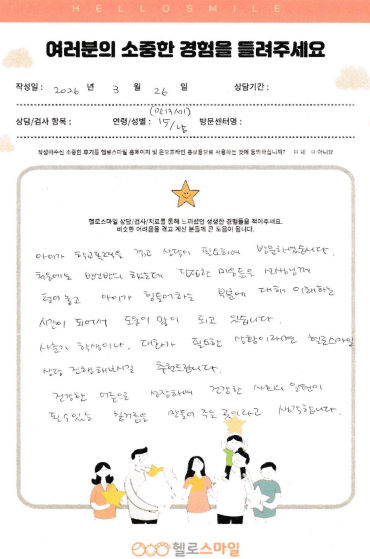 HELLOSMILE
여러분의 소중한 경험을 들려주세요
작성일 : 2026 년 3 월 26 일 상담기간 :
(만13세)
상담/검사 항목 : 연령/성별 : 15/남 방문센터명 :
작성해주신 소중한 후기를 헬로스마일 홈페이지 및 온오프라인 홍보용으로 사용하는 것에 동의하십니까? □ 네 □ 아니요
헬로스마일 상담/검사/치료를 통해 느끼셨던 생생한 경험들을 적어주세요.
비슷한 어려움을 겪고 계신 분들께 큰 도움이 됩니다.
아이가 학교폭력을 겪고 상담이 필요하여 방문하였습니다.
처음에는 했는데 답답한 마음들을 선생님께
털어놓고 아이가 힘들어하는 부분에 대해 이해하는
시간이 되어서 도움이 많이 되고 있습니다.
사춘기 학생이나, 대화가 필요한 상황이라면 헬로스마일
상담 진행해보시길 추천드립니다.
건강한 마음으로 성장하여 건강한 사회의 일원이
될 수 있는 밑거름을 만들어 주는 곳이라고 생각합니다.
헬로스마일